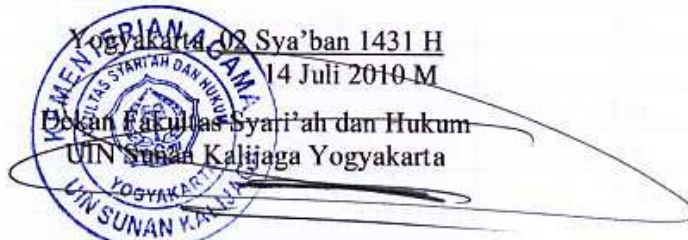 Yogyakarta, 02 Sya'ban 1431 H
14 Juli 2010 M
Dekan Fakultas Syari'ah dan Hukum
UIN Sunan Kalijaga Yogyakarta
KEMENTERIAN AGAMA
FAKULTAS SYARI'AH DAN HUKUM
YOGYAKARTA
UIN SUNAN KALIJAGA